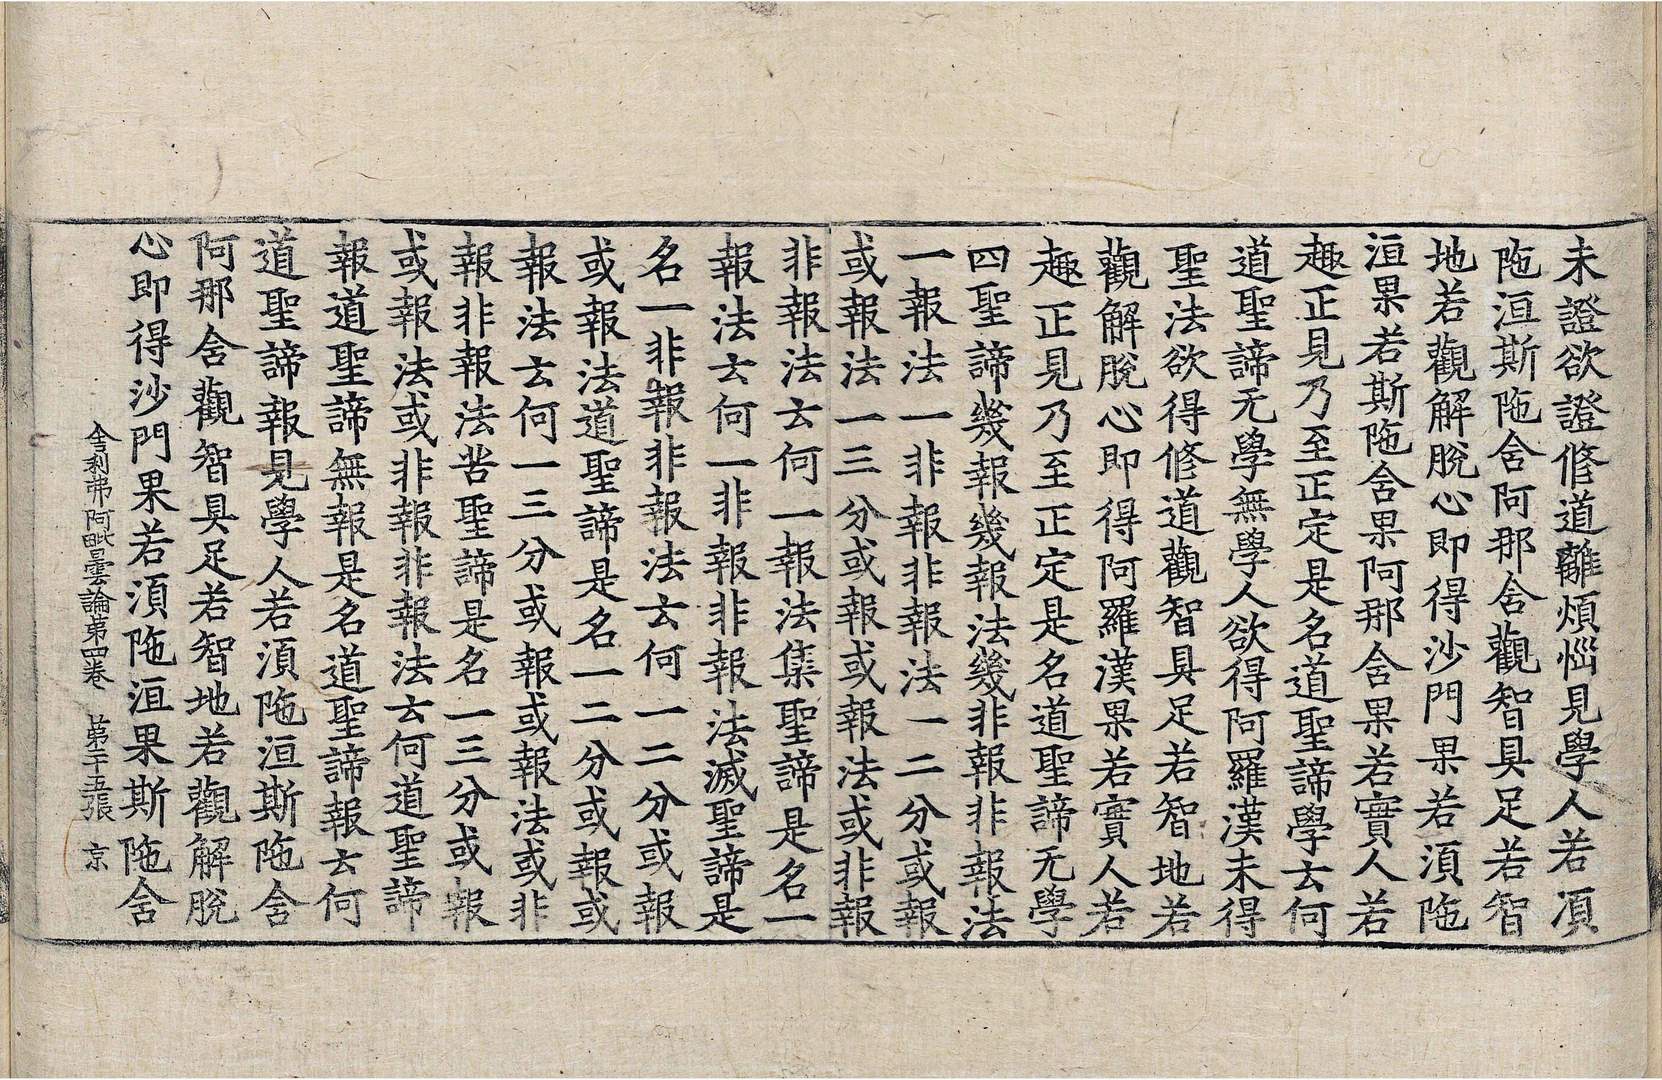 未證欲證修道離煩惱見學人若湏
陁洹斯陁含阿那含觀智具足若智
地若觀解脫心即得沙門果若湏陁
洹果若斯陁含果阿那含果若實人若
趣正見乃至正定是名道聖諦學云何
道聖諦无學無學人欲得阿羅漢未得
聖法欲得修道觀智具足若智地若
觀解脫心即得阿羅漢果若實人若
趣正見乃至正定是名道聖諦无學
四聖諦幾報幾報法幾非報非報法
一報法一非報非報法一二分或報
或報法一三分或報或報法或非報
非報法云何一報法集聖諦是名一
報法云何一非報非報法滅聖諦是
名一非報非報法云何一二分或報
或報法道聖諦是名一二分或報或
報法云何一三分或報或報法或非
報非報法苦聖諦是名一三分或報
或報法或非報非報法云何道聖諦
報道聖諦無報是名道聖諦報云何
道聖諦報見學人若湏陁洹斯陁含
阿那含觀智具足若智地若觀解脫
心即得沙門果若湏陁洹果斯陁含
舍利弗阿毗曇論第四卷 第二十五張 京